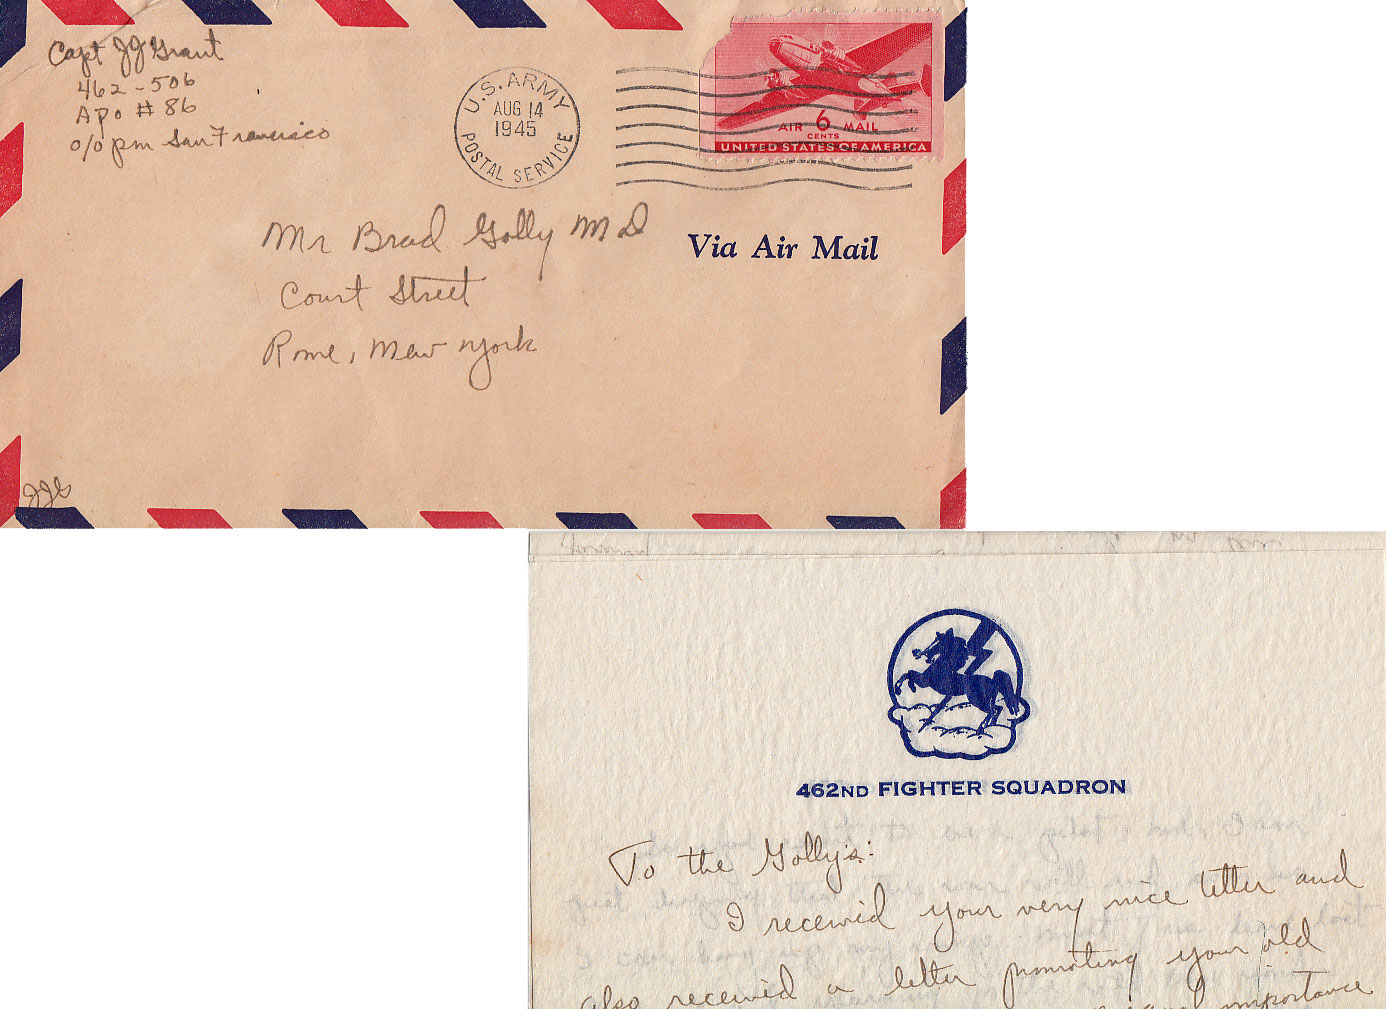 Capt JJ Grant
462-506
Apo # 86
c/o pm San Francisco
U.S. ARMY
AUG 14
1945
POSTAL SERVICE
AIR 6 MAIL
CENTS
UNITED STATES OF AMERICA
Via Air Mail
Mr Brad Golly MD
Court Street
Rome, New York
JJG
462ND FIGHTER SQUADRON
To the Golly's:
I received your very nice letter and
also received a letter promoting your old
importance